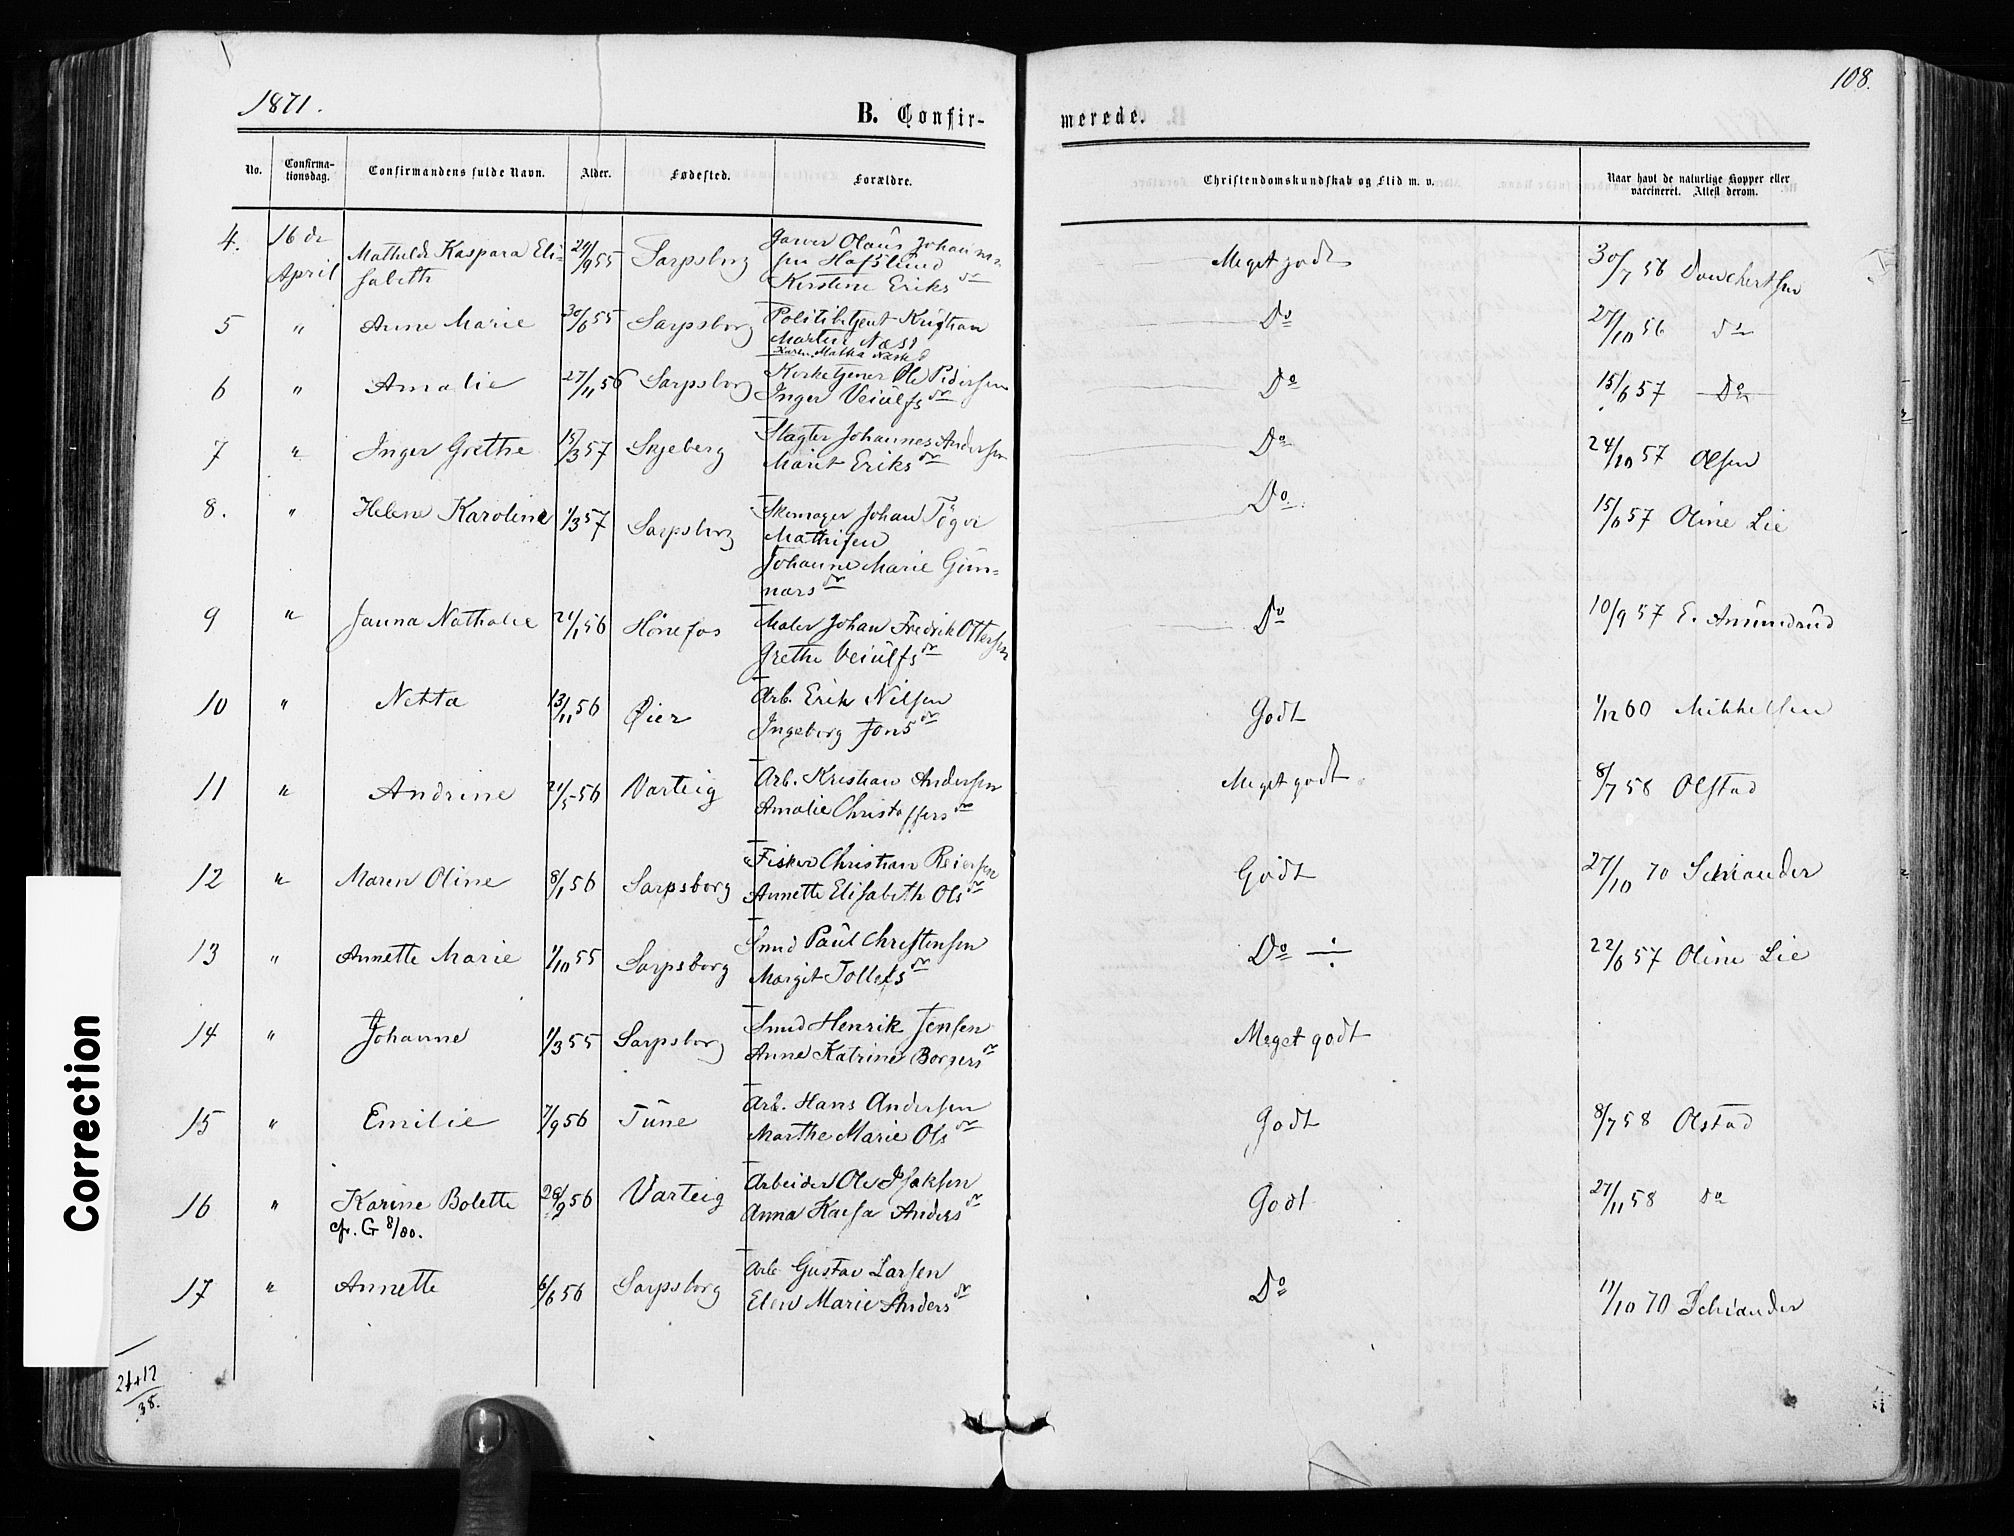 1871.
B. Confir-
merede.
108.
No.
Confirma-
tionsdag.
Confirmandens fulde Navn.
Alder.
Fødested.
Forældre.
Christendomskundskab og Flid m. v.
Naar havt de naturlige Kopper eller
vaccineret. Attest derom.
4. 16de April Mathilde Kaspara Eli-
sabeth 24/9 55 Sarpsborg Garver Olaus Johannes-
sen Hafslund
Kirstine Eriksdr Meget godt 30/7 56
5 " Anne Marie 30/6 55 Sarpsborg Politibetjent Kristian
Martin Næss
Karen Mathea Næss Do 27/10 56 do
6 " Amalie 27/11 56 Sarpsborg Kirketjener Ole Pedersen
Inger Veiulfsdr Do 15/6 57 Do
7 " Inger Grethe 15/3 57 Skjeberg Slagter Johannes Andersen
Marit Eriksdr Do 24/10 57 Olsen
8. " Helene Karoline 1/3 57 Sarpsborg Skomager Johan
Mathisen
Johanne Marie Gun-
narsdr Do. 15/6 57 Oline Lie
9 " Janna Nathalie 21/1 56 Hønefos Maler Johan Fredrik Ottersen
Grethe Veiulfsdr Do 10/9 57 E. Amundrud
10 " Netta 13/11 56 Øier Arb. Erik Nilsen
Ingeborg Jonsdr Godt 1/12 60 Mikkelsen
11 " Andrine 21/5 56 Varteig Arb. Kristian Andersen
Amalie Christoffersdr Meget godt 8/7 58 Olstad
12 " Maren Oline 8/1 56 Sarpsborg Fisker Christian Reiersen
Annette Elisabeth Olsdr Godt 27/10 70 Schiander
13 " Annette Marie 1/10 55 Sarpsborg Smed Paul Christensen
Margit Tollefsdr Do ÷ 22/6 57 Oline Lie
14 " Johanne 1/3 55 Sarpsborg Smed Henrik Jensen
Anne Katrine Borgersdr Meget godt
15 " Emilie 7/9 56 Tune Arb. Hans Andersen
Marthe Marie Olsdr Godt 8/7 58 Olstad
16 " Karine Bolette
cfr. G 8/80. 56 Varteig Arbeider Ole Isaksen
Anna Kaisa Andersdr Godt 27/11 58 do
17 " Annette 6/6 56 Sarpsborg Arb. Gustav Larsen
Elen Marie Andersdr Do 11/10 70 Schiander
21+17
38.
Correction